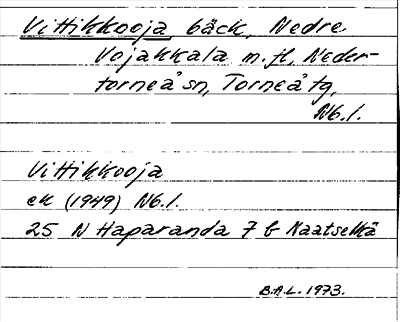 Vittikkooja bäck, Nedre
Vojakkala m.fl., Neder-
torneå sn, Torneå tg,
Nb.l.
Vittikkooja
ek (1949) Nb.l.
25 N Haparanda 7 b Naatselkä
B.A.L. 1973.